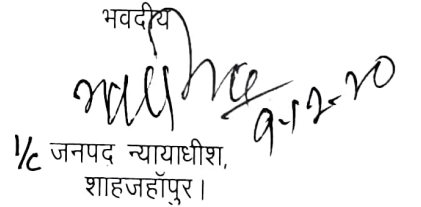 भवदीय
9-12-20
I/C जनपद न्यायाधीश,
शाहजहॉपुर।